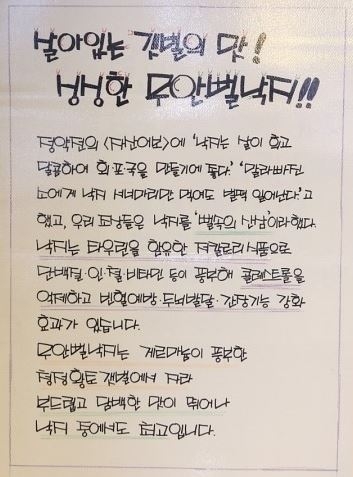 살아있는 갯벌의 맛!
싱싱한 무안뻘낙지!!
정약전의 <자산어보>에 '낙지는 살이 희고
달콤하여 회·포국을 만들기에 좋다.' '말라빠진
소에게 낙지 서너마리만 먹여도 벌떡 일어난다.'고
했고, 우리 조상들은 낙지를 '뻘속의 산삼'이라했다.
낙지는 타우린을 함유한 저칼로리식품으로
단백질·인·철·비타민 등이 풍부해 콜레스트롤을
억제하고 빈혈예방·두뇌발달·간장기능 강화
효과가 있습니다.
무안뻘낙지는 게르마늄이 풍부한
청정황토 갯벌에서 자라
부드럽고 담백한 맛이 뛰어나
낙지 중에서도 최고입니다.